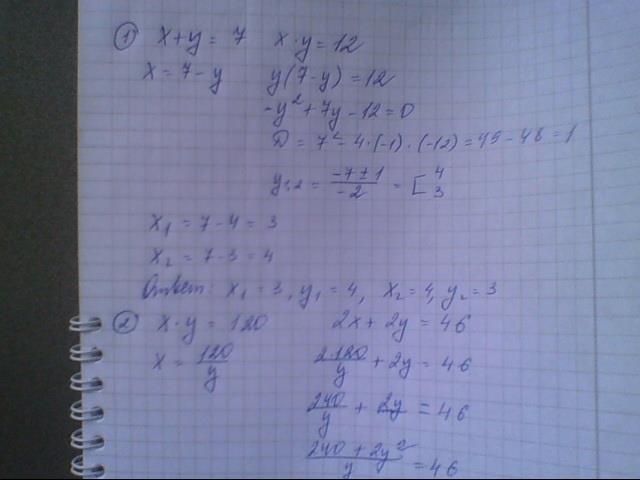 ① x+y = 7 x·y = 12
x = 7-y y(7-y) = 12
-y²+7y-12=0
D = 7²-4·(-1)·(-12)=49-48=1
y₁,₂ = (-7±1)/(-2) = [4 3
x₁ = 7-4 = 3
x₂ = 7-3 = 4
Ответ: x₁ = 3, y₁ = 4, x₂ = 4, y₂ = 3
② x·y = 120 2x + 2y = 46
x = 120/y 2·120/y + 2y = 46
240/y + 2y = 46
(240 + 2y²)/y = 46